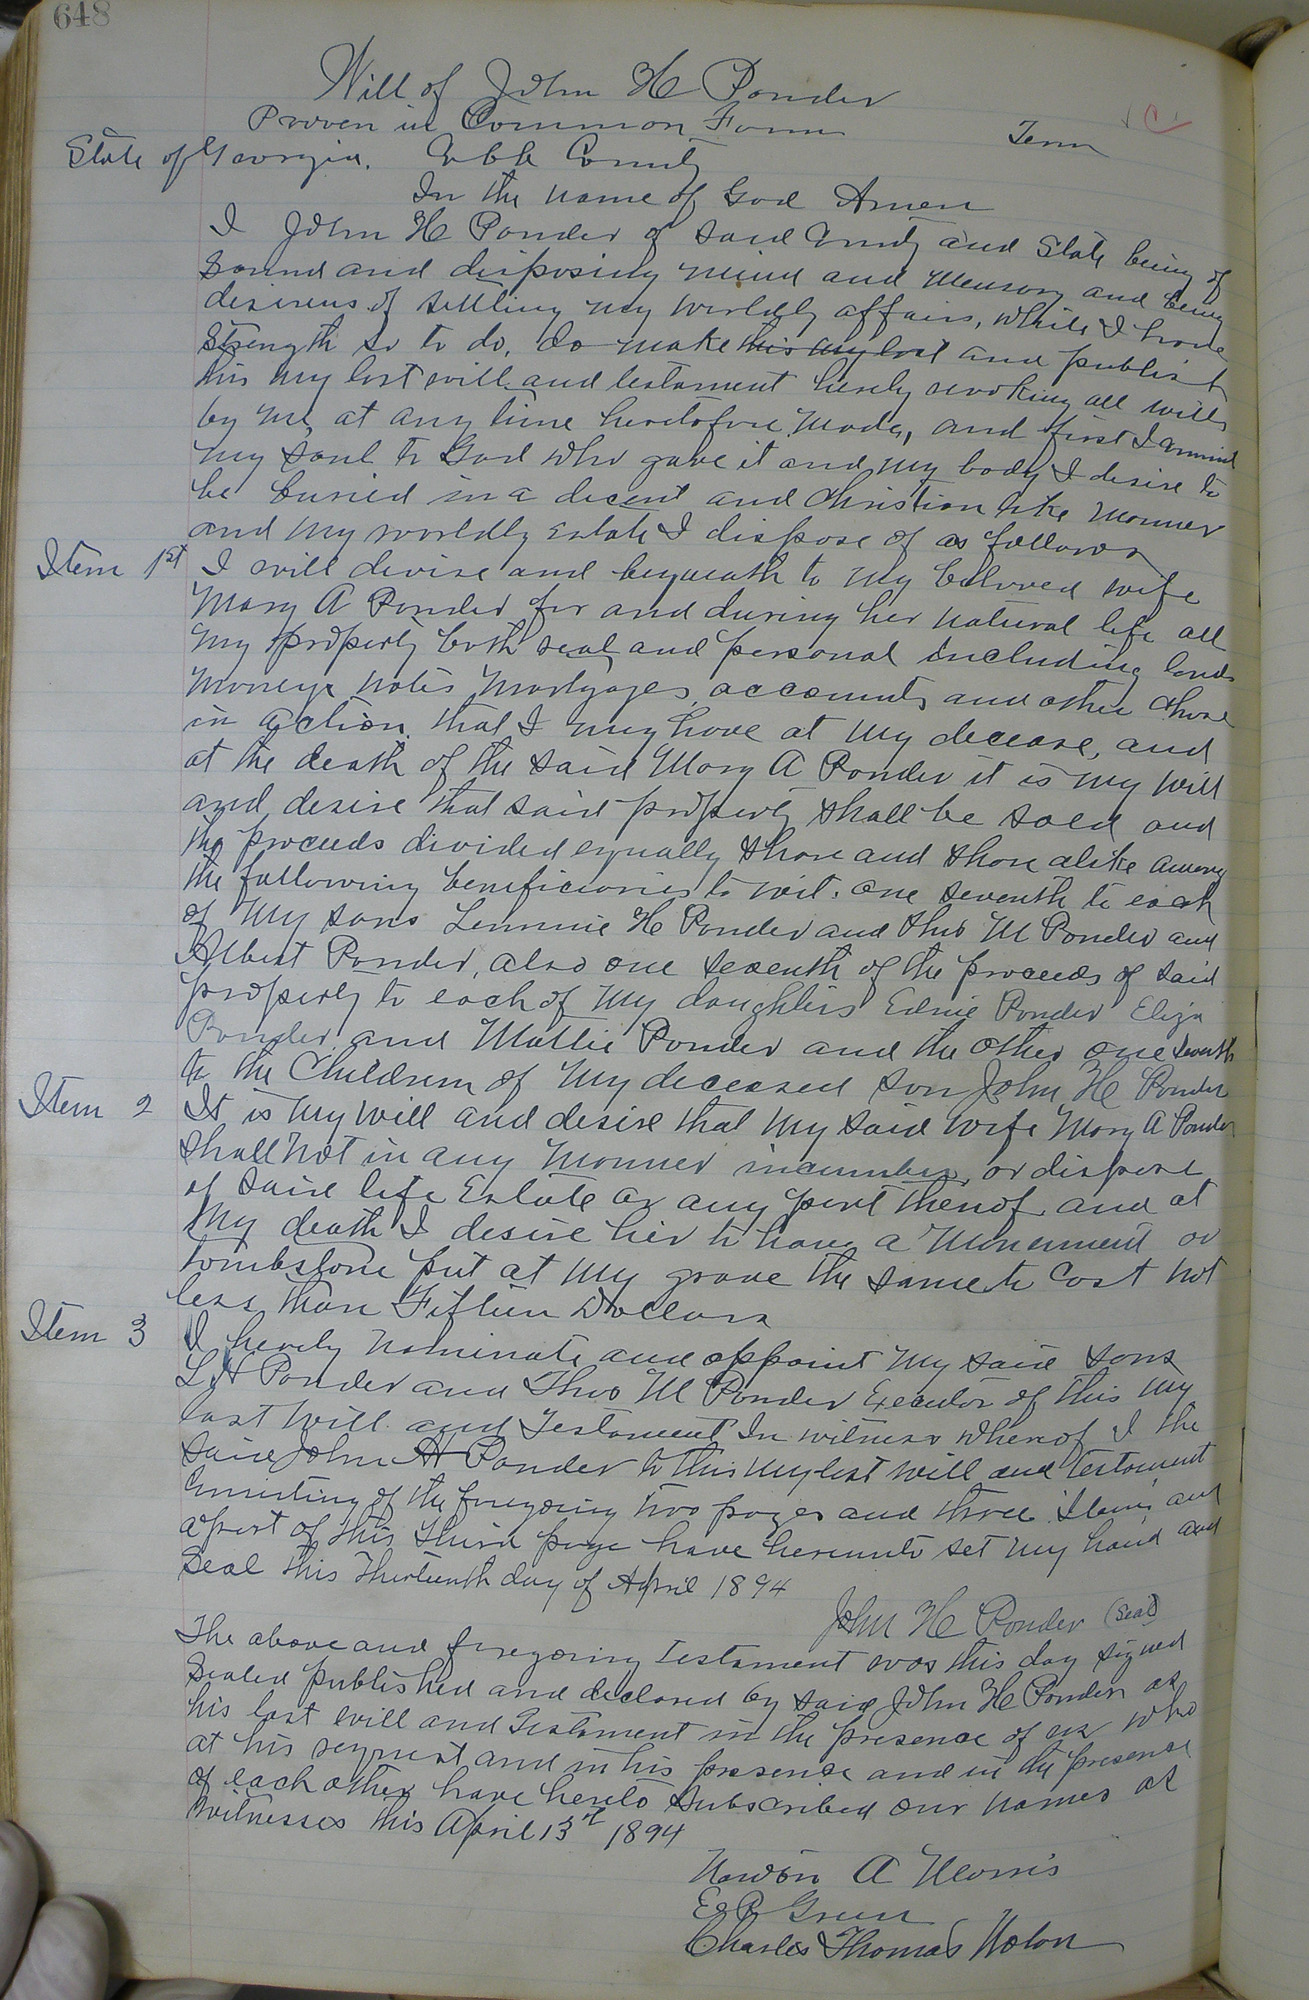 648
Will of John H Ponder
Proven in Common Form Term
State of Georgia. Cobb County
In the name of God Amen
I John H Ponder of said County and State being of
Sound and disposing mind and memory and being
desirous of settling my worldly affairs, while I have
Strength so to do, do make this my last and publish
this my last will and testament hereby revoking all wills
by me at any time heretofore made, and first I commit
my soul to God who gave it and my body I desire to
be buried in a decent and Christian like manner
and my worldly Estate I dispose of as follows
Item 1st I will devise and bequeath to my beloved wife
Mary A Ponder for and during her natural life all
my property both real and personal including lands
moneys notes, mortgages, accounts and other chose
in action, that I may have at my decease, and
at the death of the said Mary A Ponder it is my will
and desire that said property shall be sold and
the proceeds divided equally share and share alike among
the following beneficiaries to wit. one seventh to each
of my sons Lemmie H Ponder and Thos M Ponder and
Albert Ponder, also one seventh of the proceeds of said
property to each of my daughters Ednie Ponder Eliza
Ponder and Mattie Ponder and the other one seventh
to the Children of my deceased son John H Ponder
Item 2 It is my will and desire that my said wife Mary A Ponder
shall not in any manner incumber, or dispose
of said life Estate or any part thereof and at
my death I desire her to have a Monument or
tombstone put at my grave the same to Cost not
less than Fifteen Dollars
Item 3 I hereby nominate and appoint my said sons
L H Ponder and Thos M Ponder Executor of this my
last will and Testament In witness whereof I the
said John H Ponder to this my last will and testament
Consisting of the foregoing two pages and three Items and
a part of this third page have hereunto set my hand and
Seal this Thirteenth day of April 1894
John H Ponder (Seal)
The above and foregoing testament was this day signed
Sealed published and declared by said John H Ponder as
his last will and Testament in the presence of us who
at his request and in his presence and in the presence
of each other have hereto subscribed our names as
witnesses this April 13th 1894
A Morris
Green
Charles Thomas